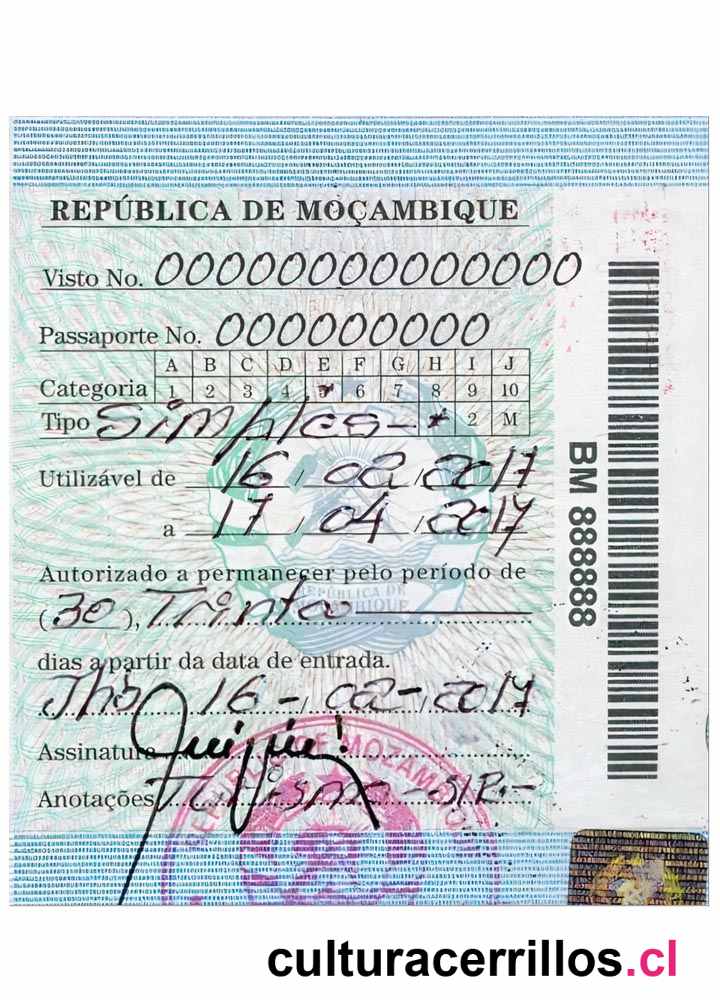 REPÚBLICA DE MOÇAMBIQUE
Visto No. 00000000000000
Passaporte No. 000000000
A B C D E F G H I J
Categoria 1 2 3 4 5 6 7 8 9 10
Tipo Simples-* 2 M
Utilizável de 16/02/2017
a 17/04/2017
Autorizado a permanecer pelo período de
(30), Trinta
dias a partir da data de entrada.
16-02-2017
Assinatura
Anotações Turismo
REPÚBLICA DE
BM 888888
culturacerrillos.cl